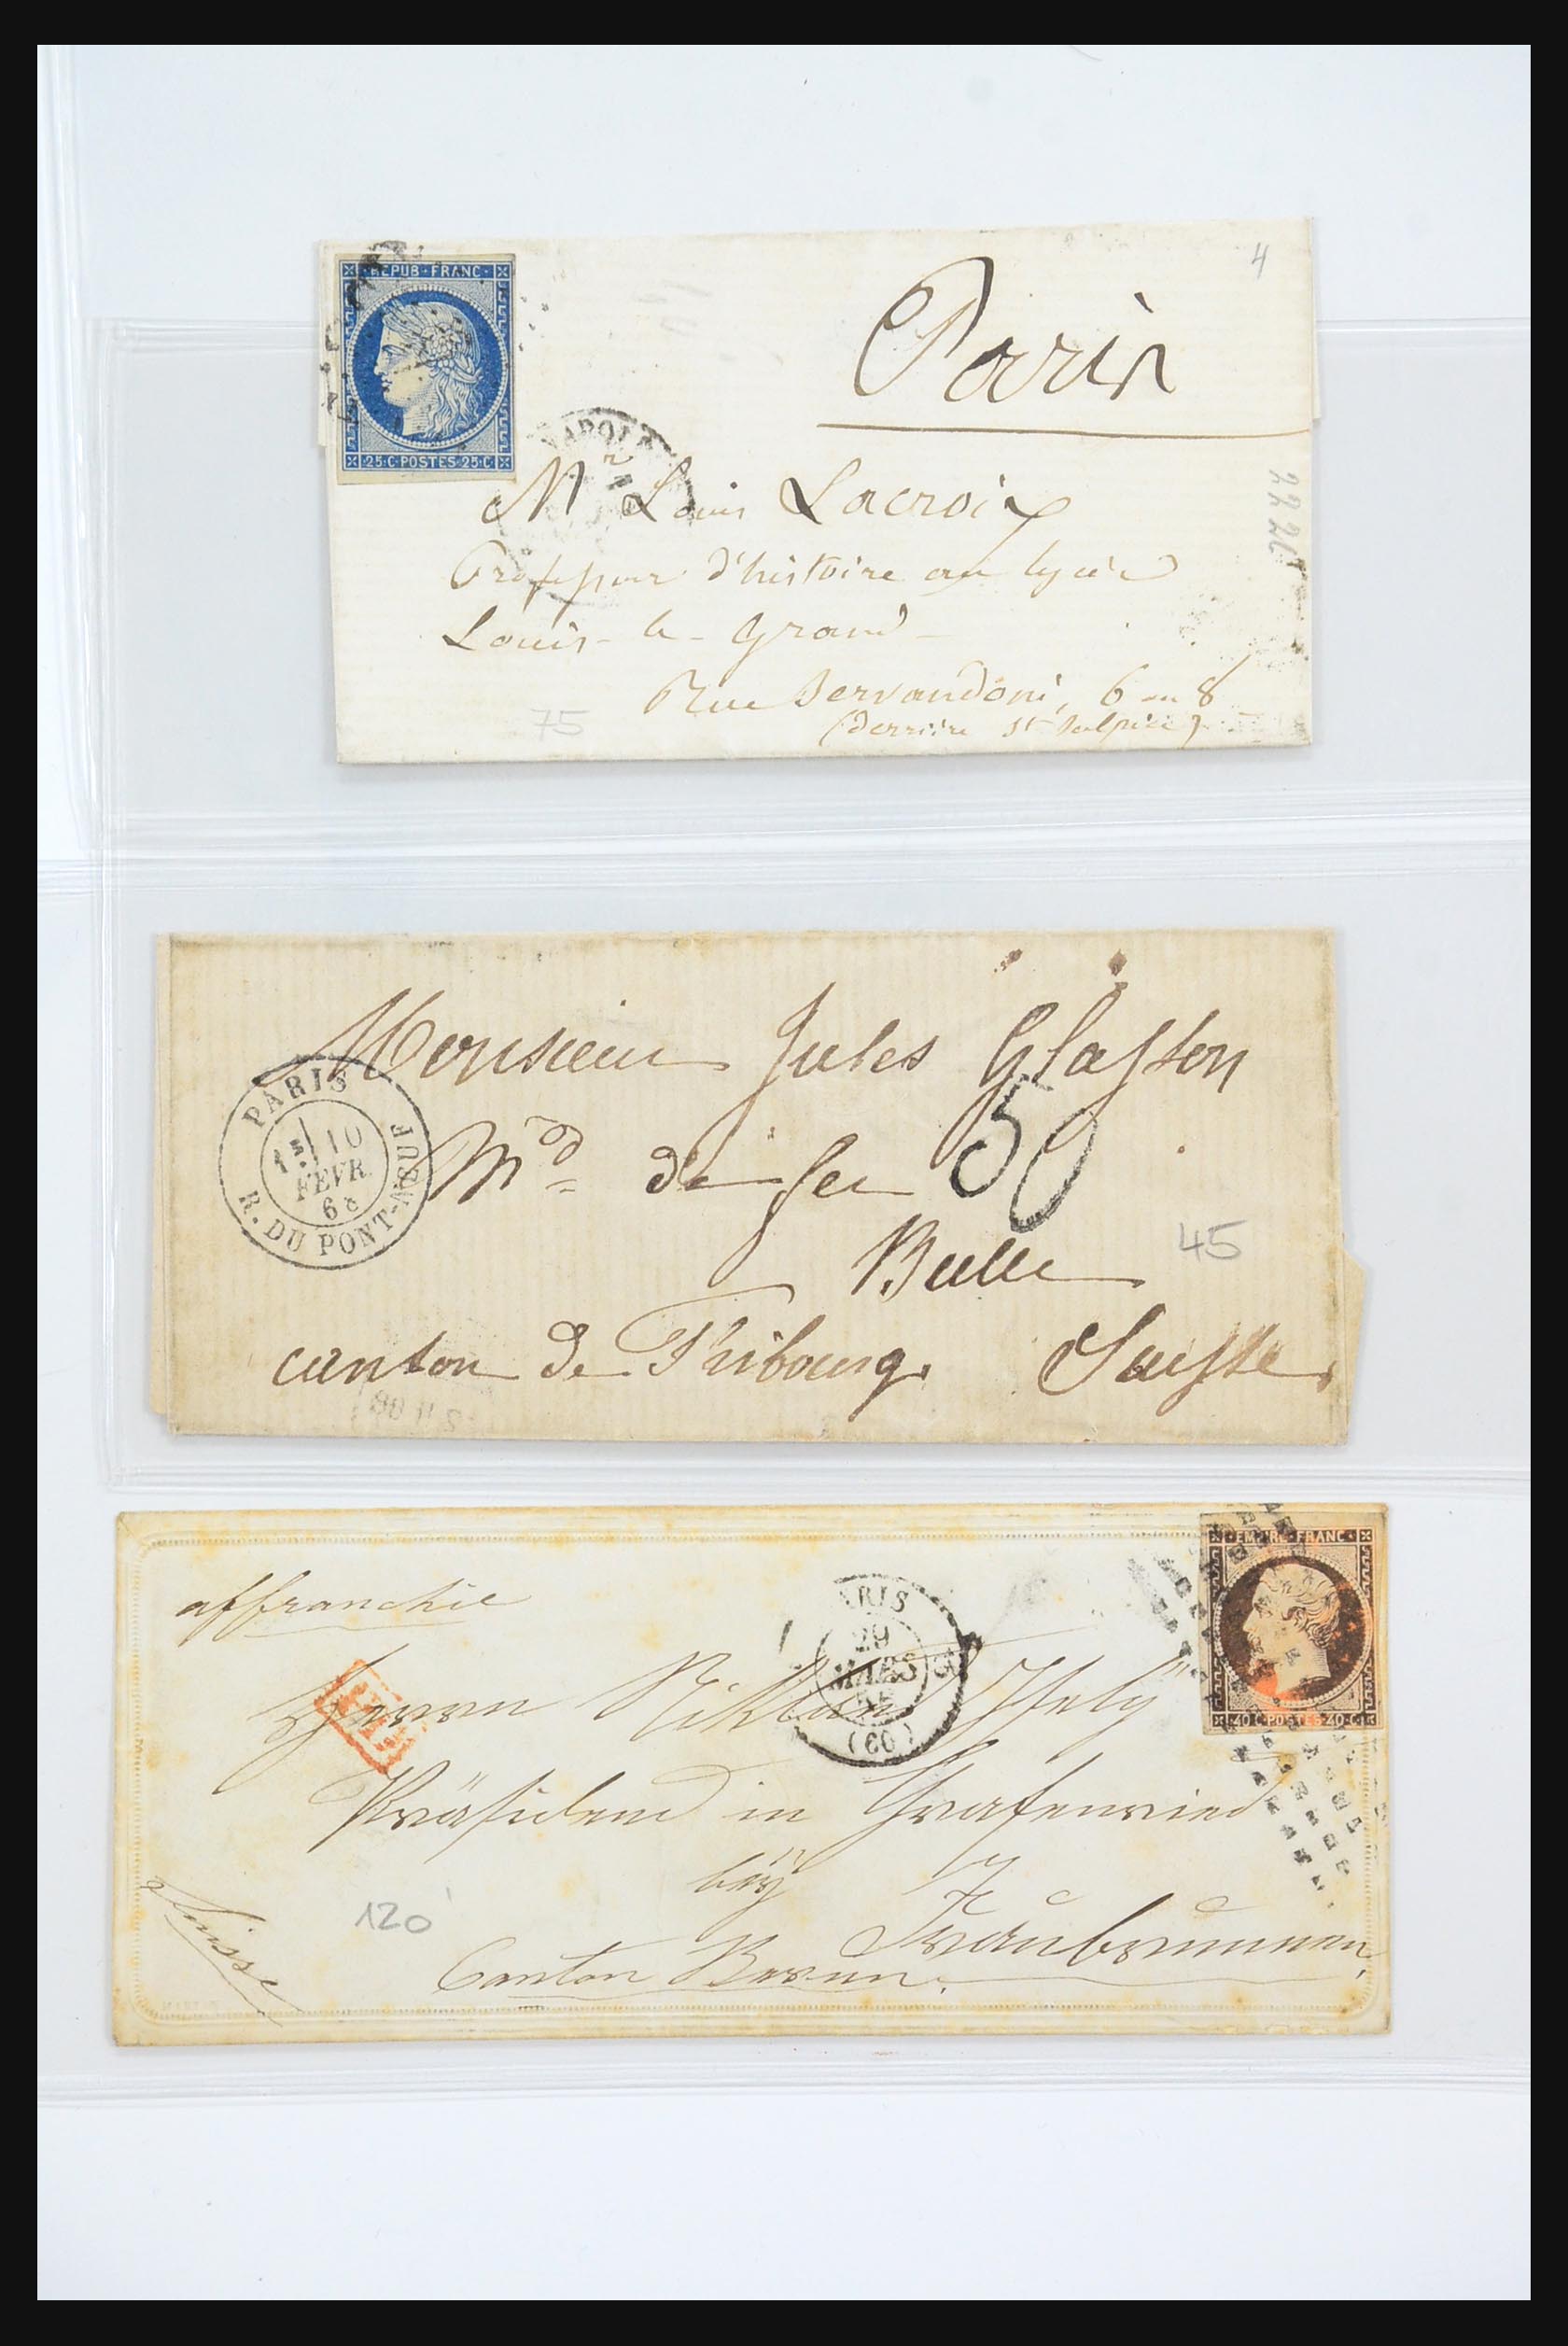 4
REPUB·FRANC
25·C·POSTES·25·C
Paris
Mr Louis Lacroix
Professeur d'histoire au lycée
Louis-le-Grand
Rue Servandoni, 6 ou 8
(derrière St Sulpice)
75
2226
Monsieur Jules Glasson
PARIS
R. DU PONT-NEUF
10
FEVR.
68
Md de fer
50
Bulle
45
canton de Fribourg. Suisse
EMPIRE·FRANC
40·C·POSTES·40·C
affranchie
PARIS
29
MARS
(60)
Herrn Niklaus Iseli
Präsident in Grafenried
bey
Fraubrunnen,
Canton Bern.
Suisse
120